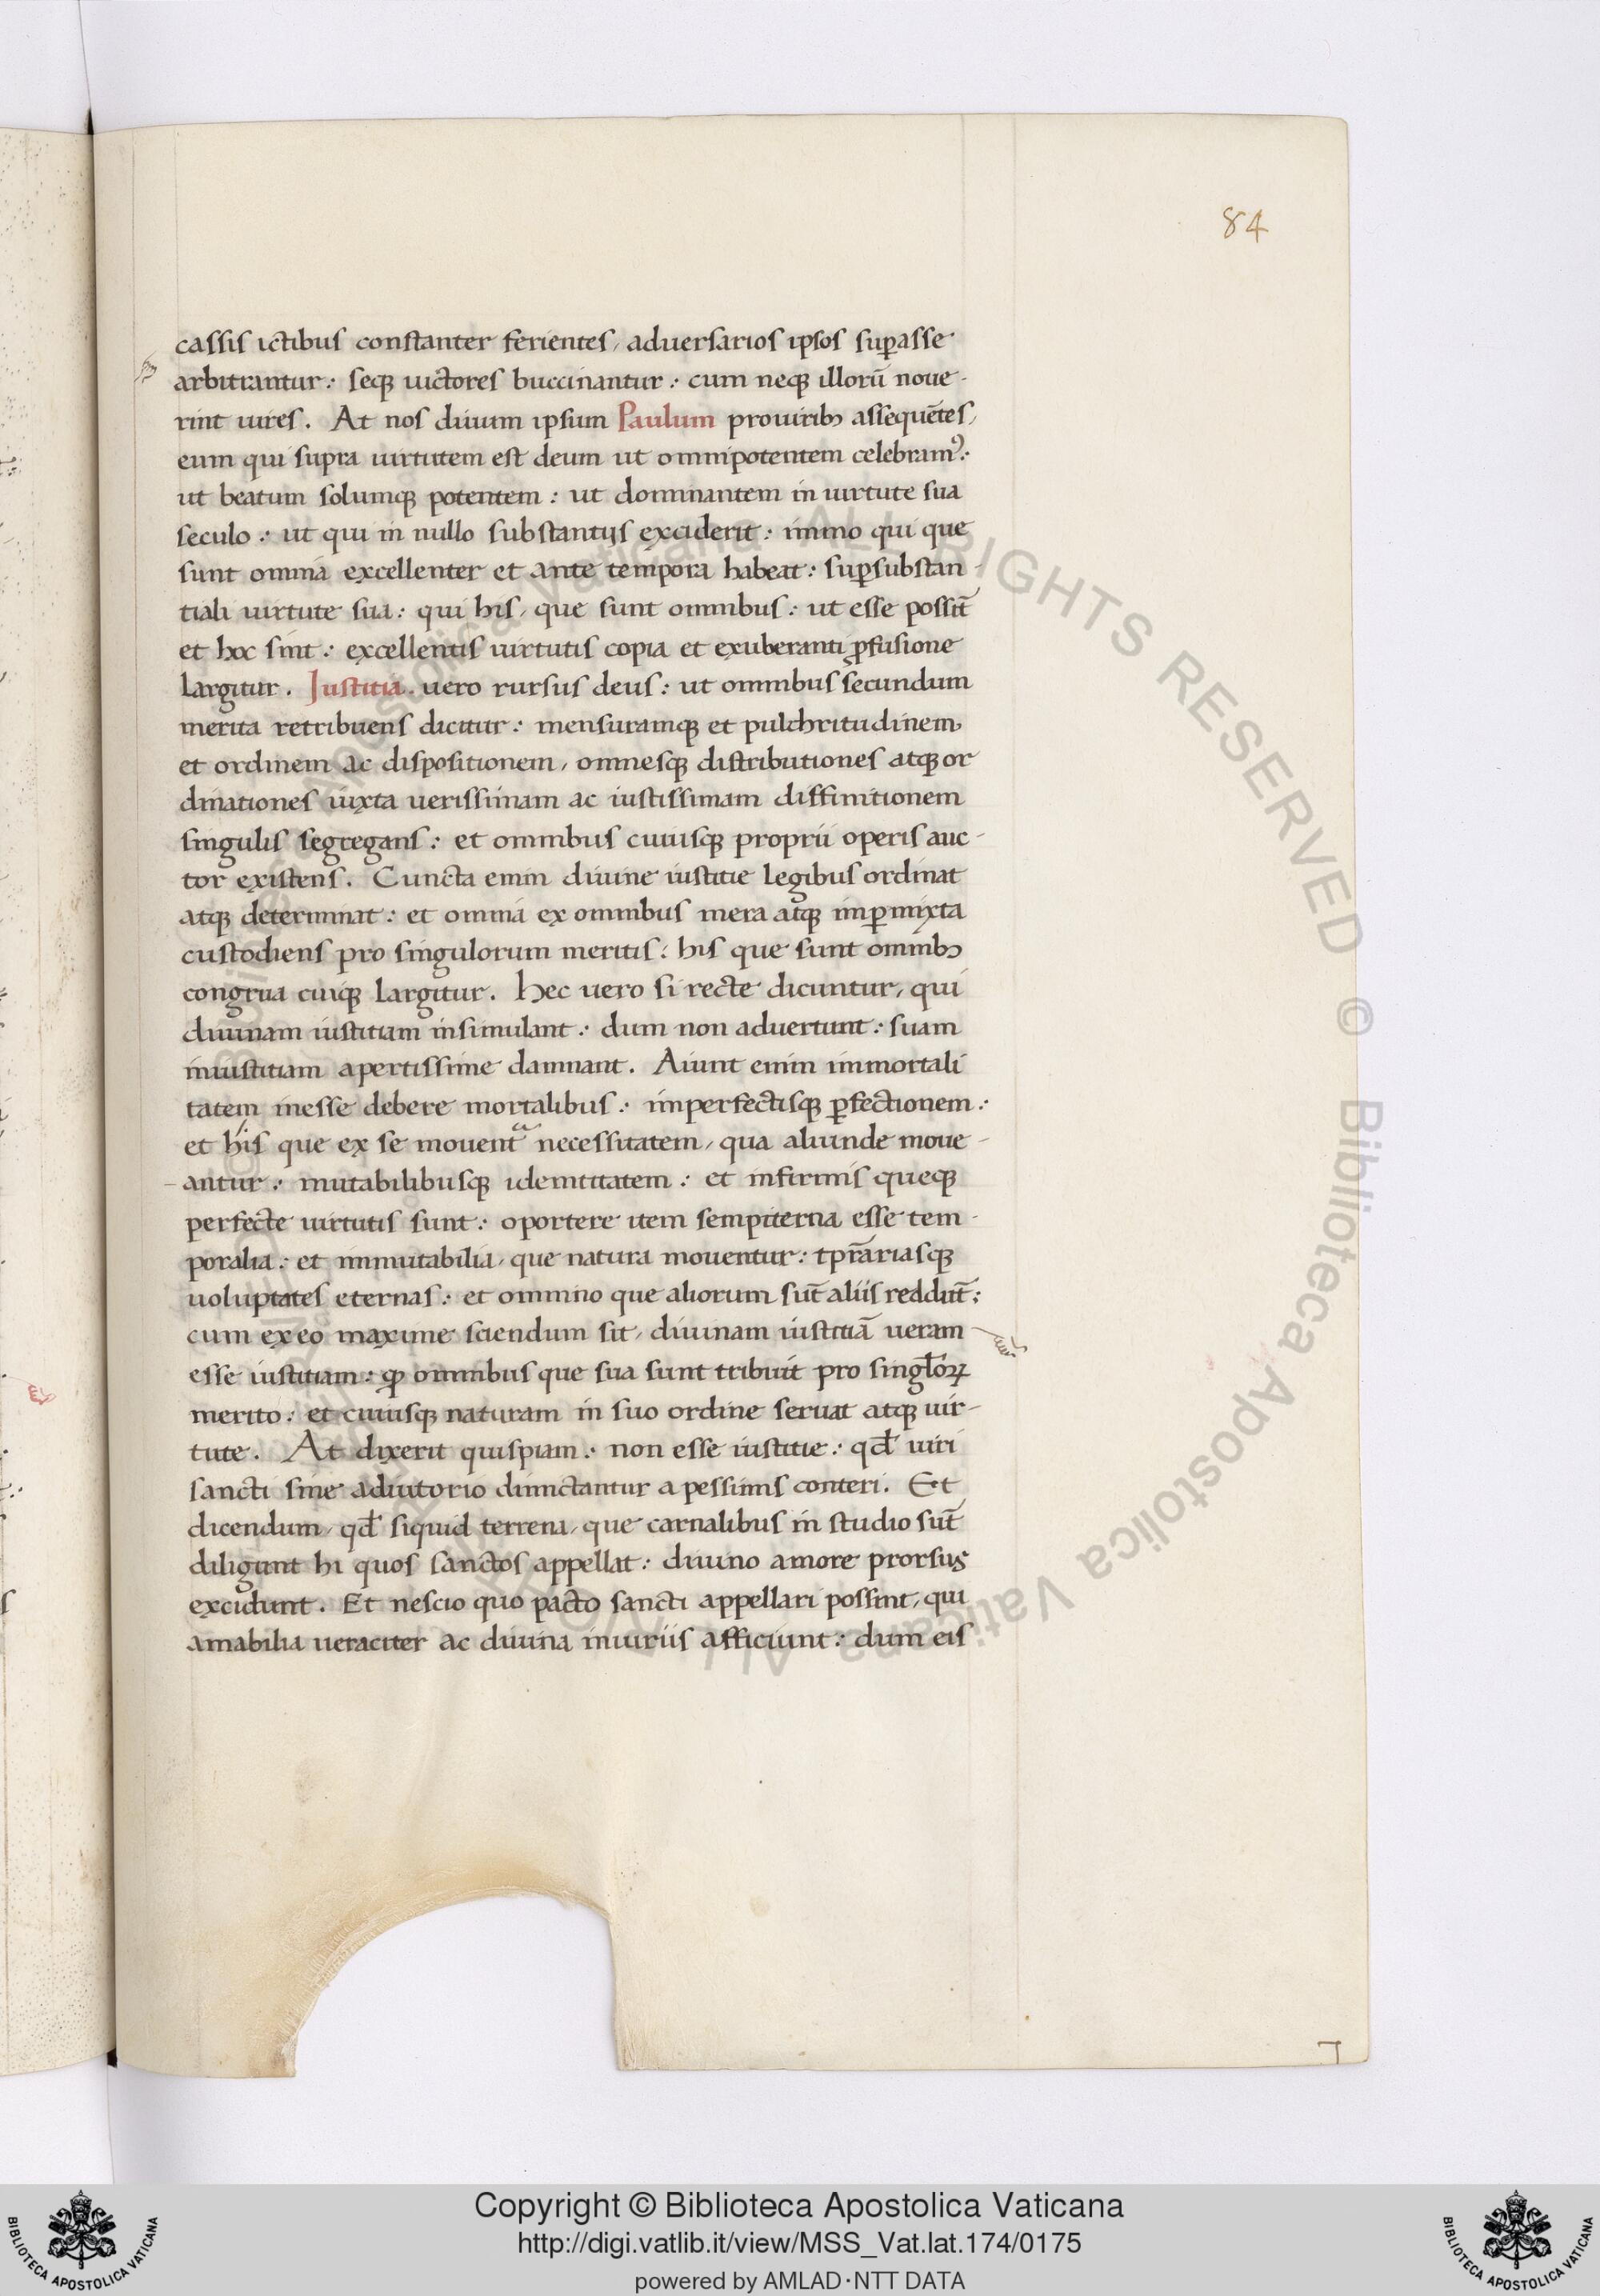 84
cassis ictibus constanter ferientes, aduersarios ipsos suꝑasse
arbitrantur: seqꝫ uictores buccinantur: cum neqꝫ illorū noue-
rint uires. At nos diuum ipsum Paulum prouiribꝫ assequētes,
eum qui supra uirtutem est deum ut omnipotentem celebramꝰ:
ut beatum solumqꝫ potentem: ut dominantem in uirtute sua
seculo: ut qui in nullo substantijs exciderit: immo qui que
sunt omnia excellenter et ante tempora habeat: suꝑsubstan-
tiali uirtute sua: qui his, que sunt omnibus: ut esse possīt
et hoc sint: excellentis uirtutis copia et exuberanti ꝓfusione
largitur. Iustitia uero rursus deus: ut omnibus secundum
merita retribuens dicitur: mensuramqꝫ et pulchritudinem
et ordinem ac dispositionem, omnesqꝫ distributiones atqꝫ or
dinationes iuxta uerissimam ac iustissimam diffinitionem
singulis segregans: et omnibus cuiusqꝫ proprii operis auc-
tor existens. Cuncta enim diuine iustitie legibus ordinat
atqꝫ determinat: et omnia ex omnibus mera atqꝫ imꝑmixta
custodiens pro singulorum meritis: his que sunt omnibꝫ
congrua cuiqꝫ largitur. Hec uero si recte dicuntur, qui
diuinam iustitiam insimulant: dum non aduertunt: suam
iniustitiam apertissime damnant. Aiunt enim immortali
tatem inesse debere mortalibus: imperfectisqꝫ ꝑfectionem:
et his que ex se mouentᵃ necessitatem, qua aliunde moue-
antur: mutabilibusqꝫ identitatem: et infirmis queqꝫ
perfecte uirtutis sunt: oportere item sempiterna esse tem-
poralia: et immutabilia, que natura mouentur: tꝑrāriasqꝫ
uoluptates eternas: et omnino que aliorum sūt aliis reddūt:
cum ex eo maxime sciendum sit, diuinam iustitiā ueram
esse iustitiam: ꝙ omnibus que sua sunt tribuit pro singl̄oꝝ
merito: et cuiusqꝫ naturam in suo ordine seruat atqꝫ uir-
tute. At dixerit quispiam: non esse iustitie: qđ uiri
sancti sine adiutorio dimictantur a pessimis conteri. Et
dicendum, qđ siquid terrena, que carnalibus in studio sūt
diligunt hi quos sanctos appellat: diuino amore prorsus
excidunt. Et nescio quo pacto sancti appellari possint, qui
amabilia ueraciter ac diuina iniuriis afficiunt: dum eis
© Biblioteca Apostolica Vaticana ALL RIGHTS RESERVED
© Biblioteca Apostolica Vaticana ALL RIGHTS RESERVED
BIBLIOTECA APOSTOLICA VATICANA
Copyright © Biblioteca Apostolica Vaticana
http://digi.vatlib.it/view/MSS_Vat.lat.174/0175
powered by AMLAD·NTT DATA
BIBLIOTECA APOSTOLICA VATICANA